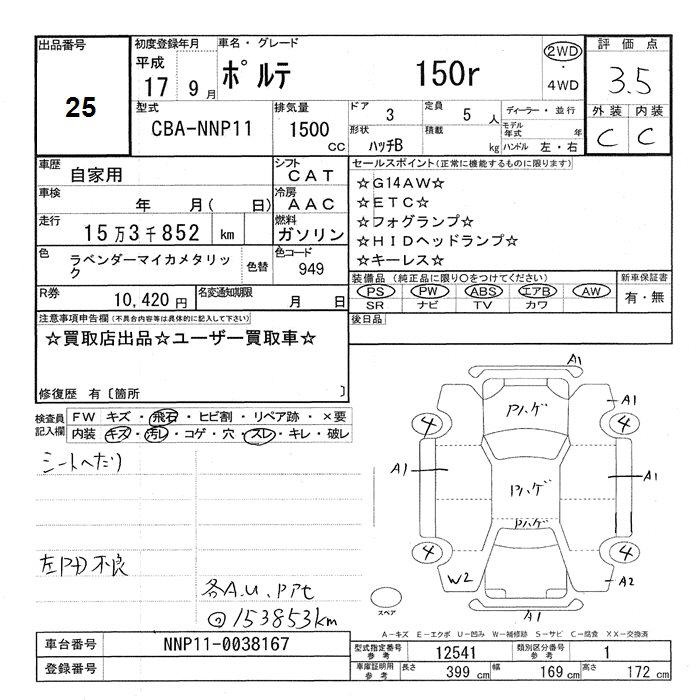 出品番号
25
初度登録年月
平成
17 9月
車名・グレード
ポルテ 150r
2WD
・
4WD
評価点
3.5
外装 内装
C C
型式
CBA-NNP11
排気量
1500
CC
ドア
3
定員
5 人
ディーラー・並行
モデル
年式
年
形状
ハッチB
積載
kg
ハンドル 左・右
車歴
自家用
シフト
CAT
車検
年 月( 日)
冷房
AAC
走行
15万3千852 km
燃料
ガソリン
色
ラベンダーマイカメタリッ
ク
色替
色コード
949
R券
10,420円
名変通知期限
月 日
セールスポイント(正常に機能するものに限ります)
☆G14AW☆
☆ETC☆
☆フォグランプ☆
☆HIDヘッドランプ☆
☆キーレス☆
装備品 (純正品に限り○をつけてください)
新車保証書
PS PW ABS エアB AW
SR ナビ TV カワ
有・無
後日品
注意事項申告欄(不具合内容等は具体的に記入して下さい)
☆買取店出品☆ユーザー買取車☆
修復歴 有〔箇所 〕
検査員
記入欄
FW キズ・飛石・ヒビ割・リペア跡・×要
内装 キズ・汚レ・コゲ・穴・スレ・キレ・破レ
シートへたり
左PD不良
各A.U.PPt
153853km
A1
A1
Pハゲ
4
4
A1
A1
Pハゲ
Pハゲ
4
4
W2
A2
A1
スペア
A-キズ E-エクボ U-凹み W-補修跡 S-サビ C-腐食 XX-交換済
車台番号
NNP11-0038167
登録番号
型式指定番号
参考
12541
類別区分番号
参考
1
車庫証明用
参考
長さ
399 cm
幅
169 cm
高さ
172 cm